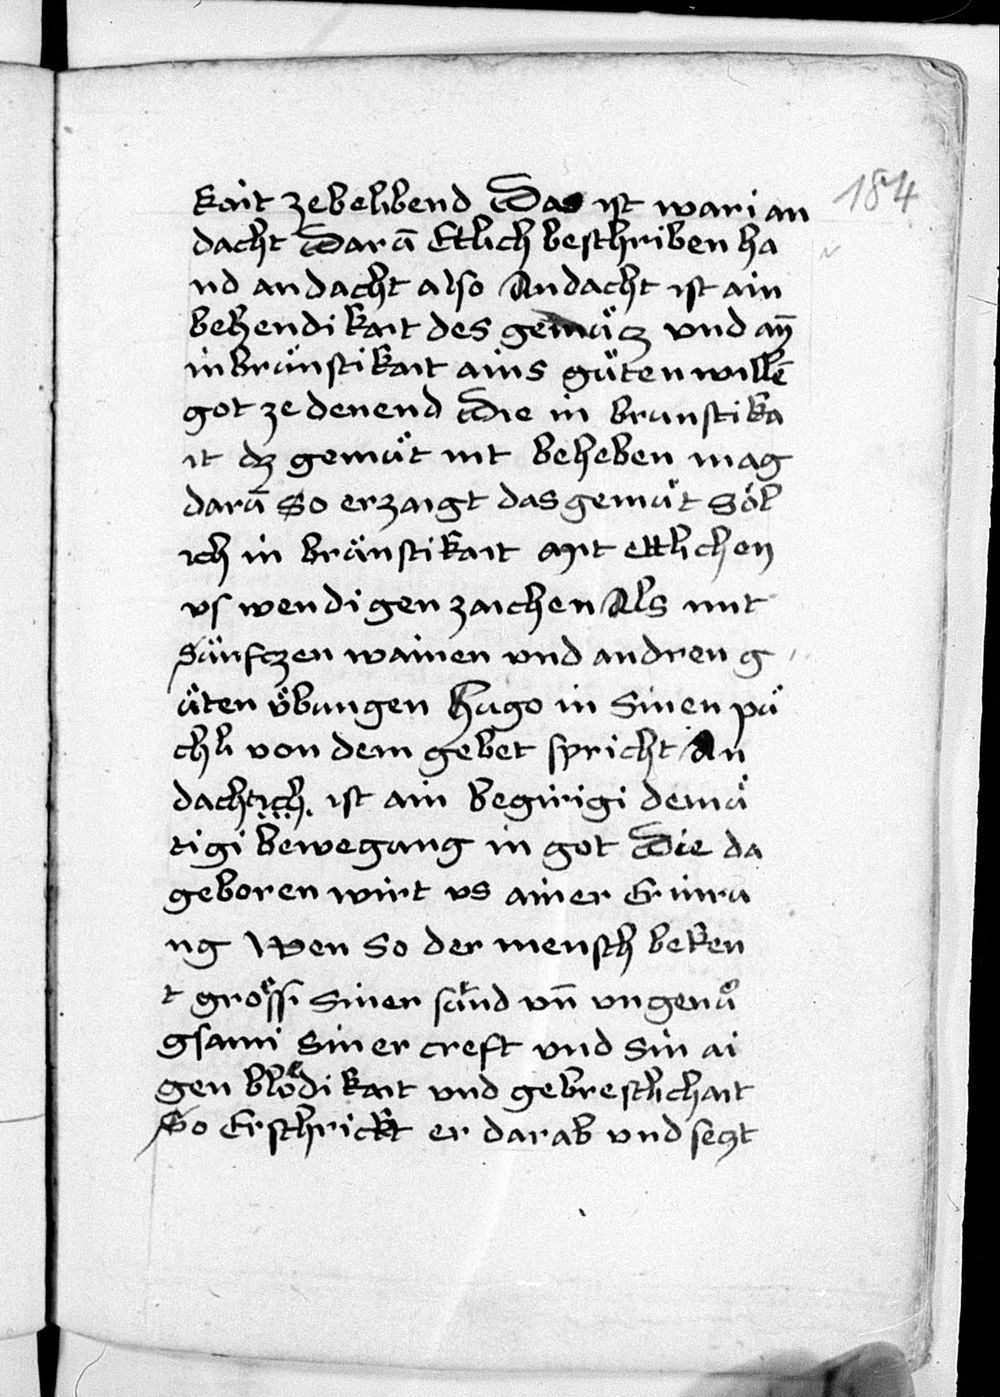 kait ze belibend Das ist wari an
184
dacht Darū Etlich beschriben ha
nd andacht also Andacht ist ain
behendikait des gemüͤtz vnd ayn̄
inbrünstikait ains guͤten willē
got ze denend Die in brunstika
it dz gemuͤt nit beheben mag
darū So erzaigt das gemuͤt Söl
ich in brünstikait myt ettlichen
vswendigen zaichen Als mit
Sünftzen wainen vnd andren g
uͤten uͤbungen Hugo in Sinen puͤ
chli von dem gebet spricht An
dachtich ist ain begirigi demuͤ
tigi bewegung in got Die da
geboren wirt vs ainer Erinru
ng Wen So der mensch beken
t groͤssi Siner sünd vn̄ vngenuͦ
gsami Siner creft vnd Sin ai
gen bloͤdikait vnd gebrestlichait
So Erschrickt er darab vnd setzt